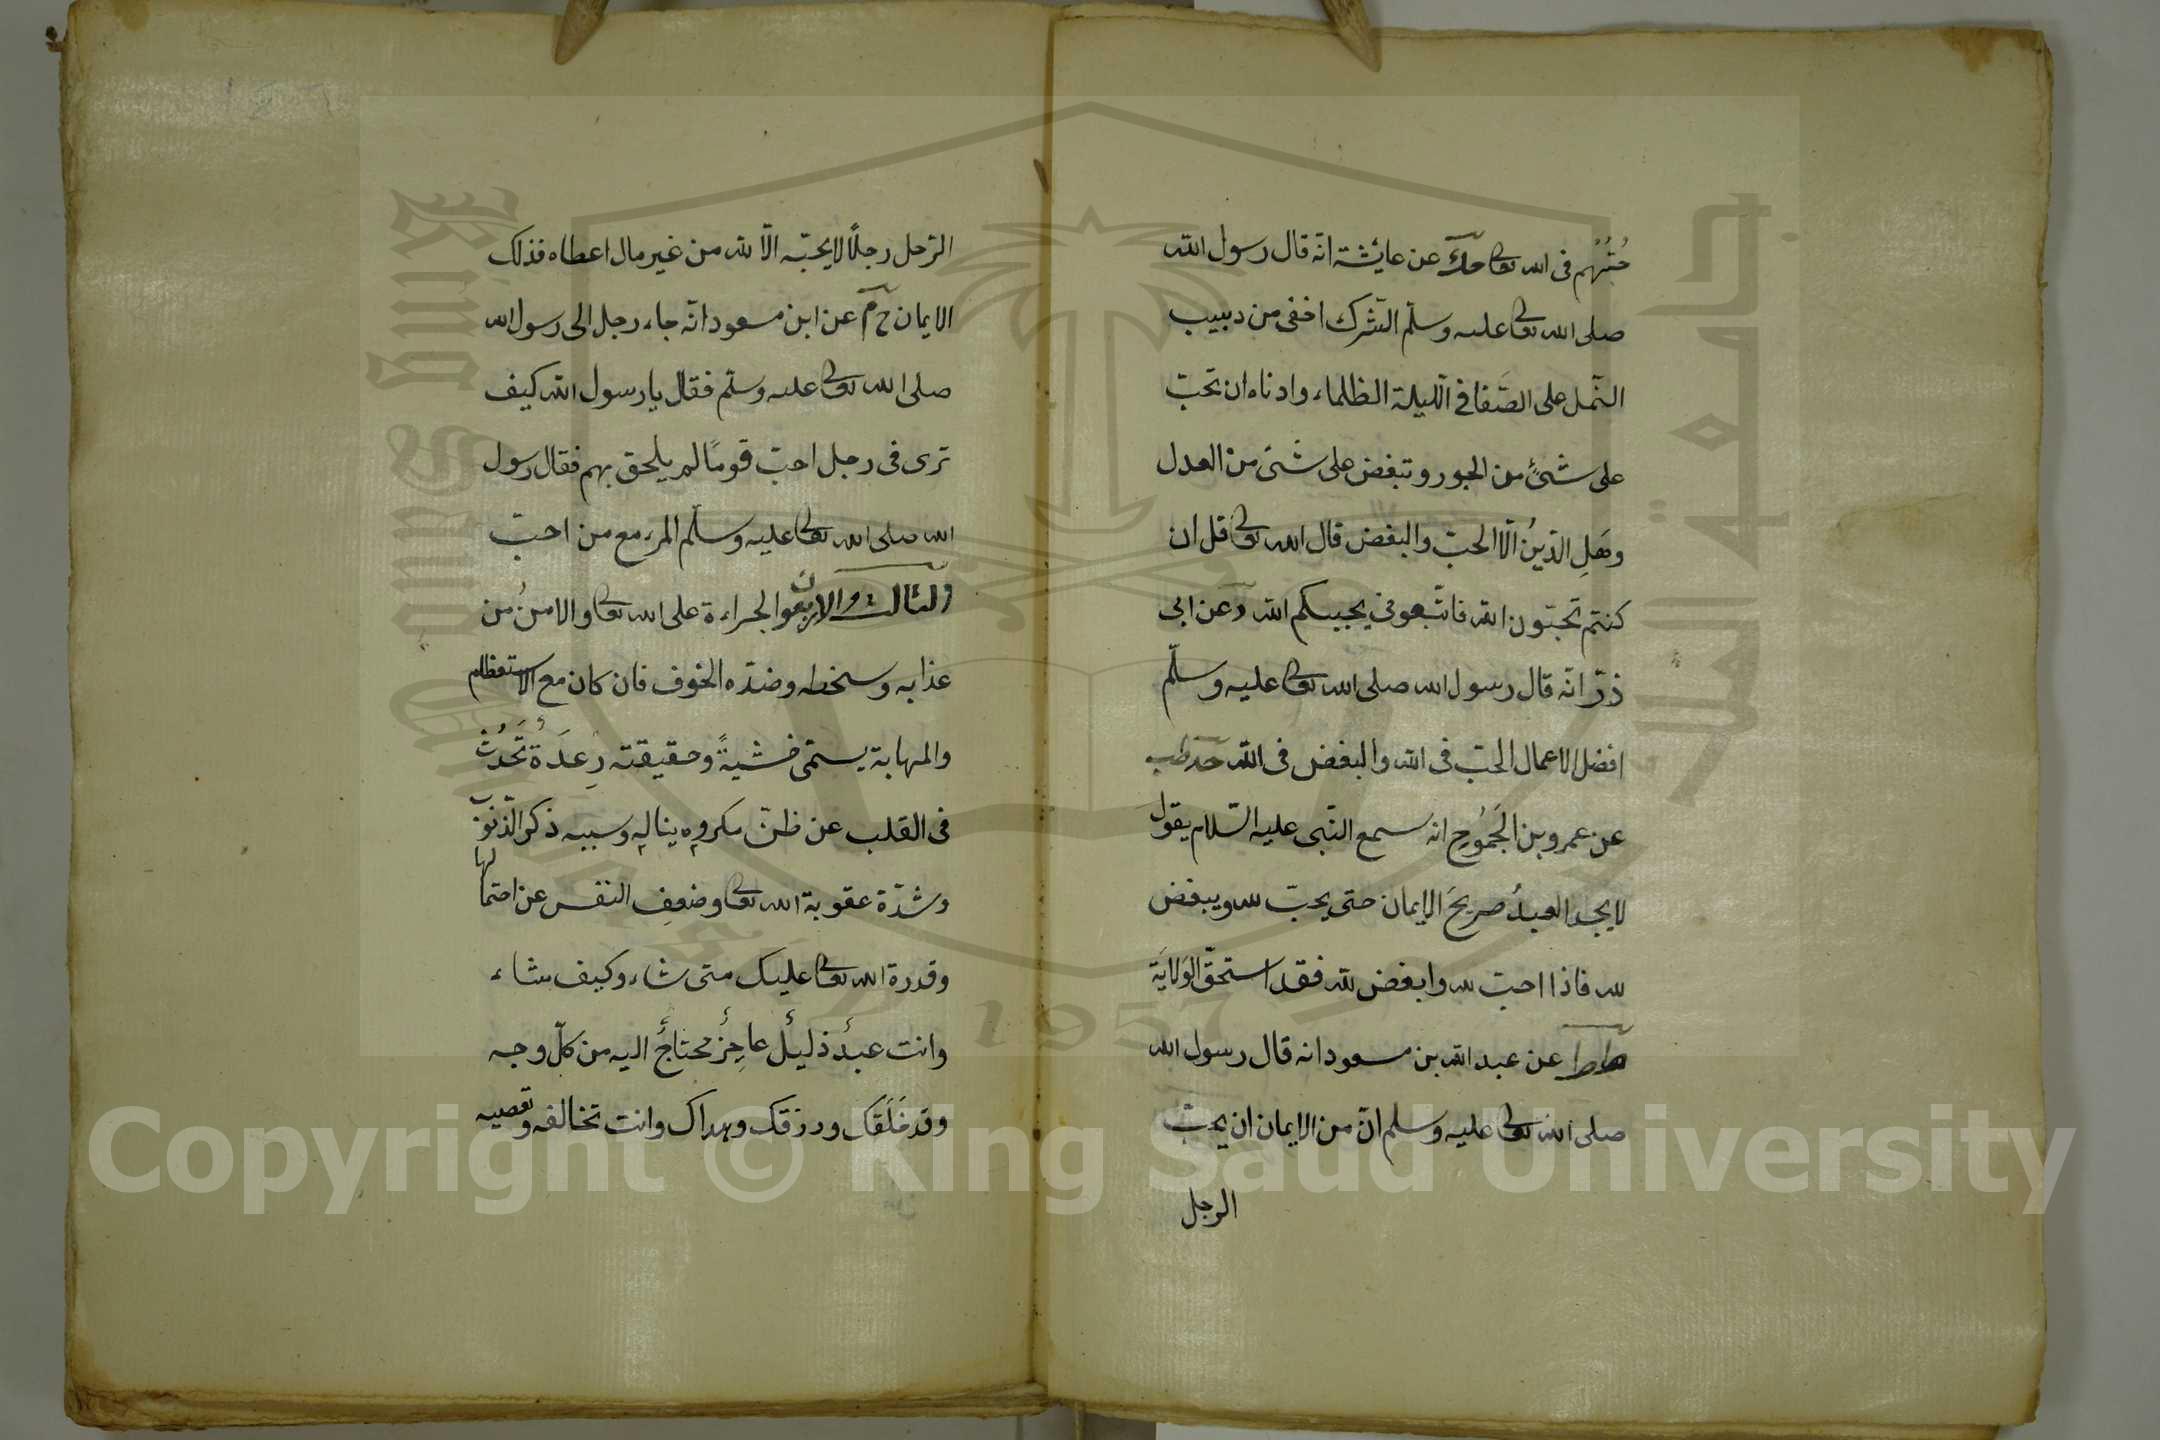 حُبُّهُم فى الله تعالى حك عن عايشة انّه قال رسول الله
صلى الله تعالى عليه وسلّم الشّرك اخفى من دبيب
النّمل على الصّفا فى اللّيلة الظلماء وادناه ان تحبّ
على شئٍ من الجور وتبغض على شئ من العدل
وهَلِ الدّينُ الّا الحبّ والبغض قال الله تعالى قل ان
كنتم تحبّون الله فاتّبعونى يحببكم الله د عن ابى
ذرّ انّه قال رسول الله صلى الله تعالى عليه وسلّم
افضل الاعمال الحبّ فى الله والبغض فى الله حد طب
عن عمرو بن الجَمُوحِ انه سمع النّبى عليه السّلام يقول
لا يجد العبدُ صريحَ الإيمان حتى يحبّ لله ويبغض
لله فاذا احبّ لله وابغض لله فقد استحقّ الوَلايَة
طط عن عبد الله بن مسعود انه قال رسول الله
صلى الله تعالى عليه وسلم انّ من الإيمان ان يحبّ
الرجل
الرّجل رجلًا لا يحبّه الّا لله من غير مال اعطاه فذلك
الايمان خ م عن ابن مسعود انّه جاء رجل الى رسول الله
صلى الله تعالى عليه وسلّم فقال يا رسول الله كيف
ترى فى رجل احبّ قومًا لم يلحق بهم فقال رسول
الله صلى الله تعالى عليه وسلّم المرء مع من احبّ
الثالث والاربعون الجراءة على الله تعالى والامنُ من
عذابه وسخطه وضدّه الخوف فان كان مع الاستعظام
والمهابة يسمّى خشيةً وحقيقته رِعدَةٌ تَحْدُثُ
فى القلب عن ظنّ مكروهٍ ينالهٍ وسببه ذكر الذّنوب
وشدّة عقوبة الله تعالى وضعفِ النفس عن احتمالها
وقدرة الله تعالى عليك متى شاء وكيف شاء
وانت عبدٌ ذليلٌ عاجِزٌ محتاجٌ اليه من كلّ وجه
وقد خَلَقَك ورزقك وهداك وانت تخالفه وتعصيه
جامعة الملك سعود
King Saud University
1957
Copyright © King Saud University